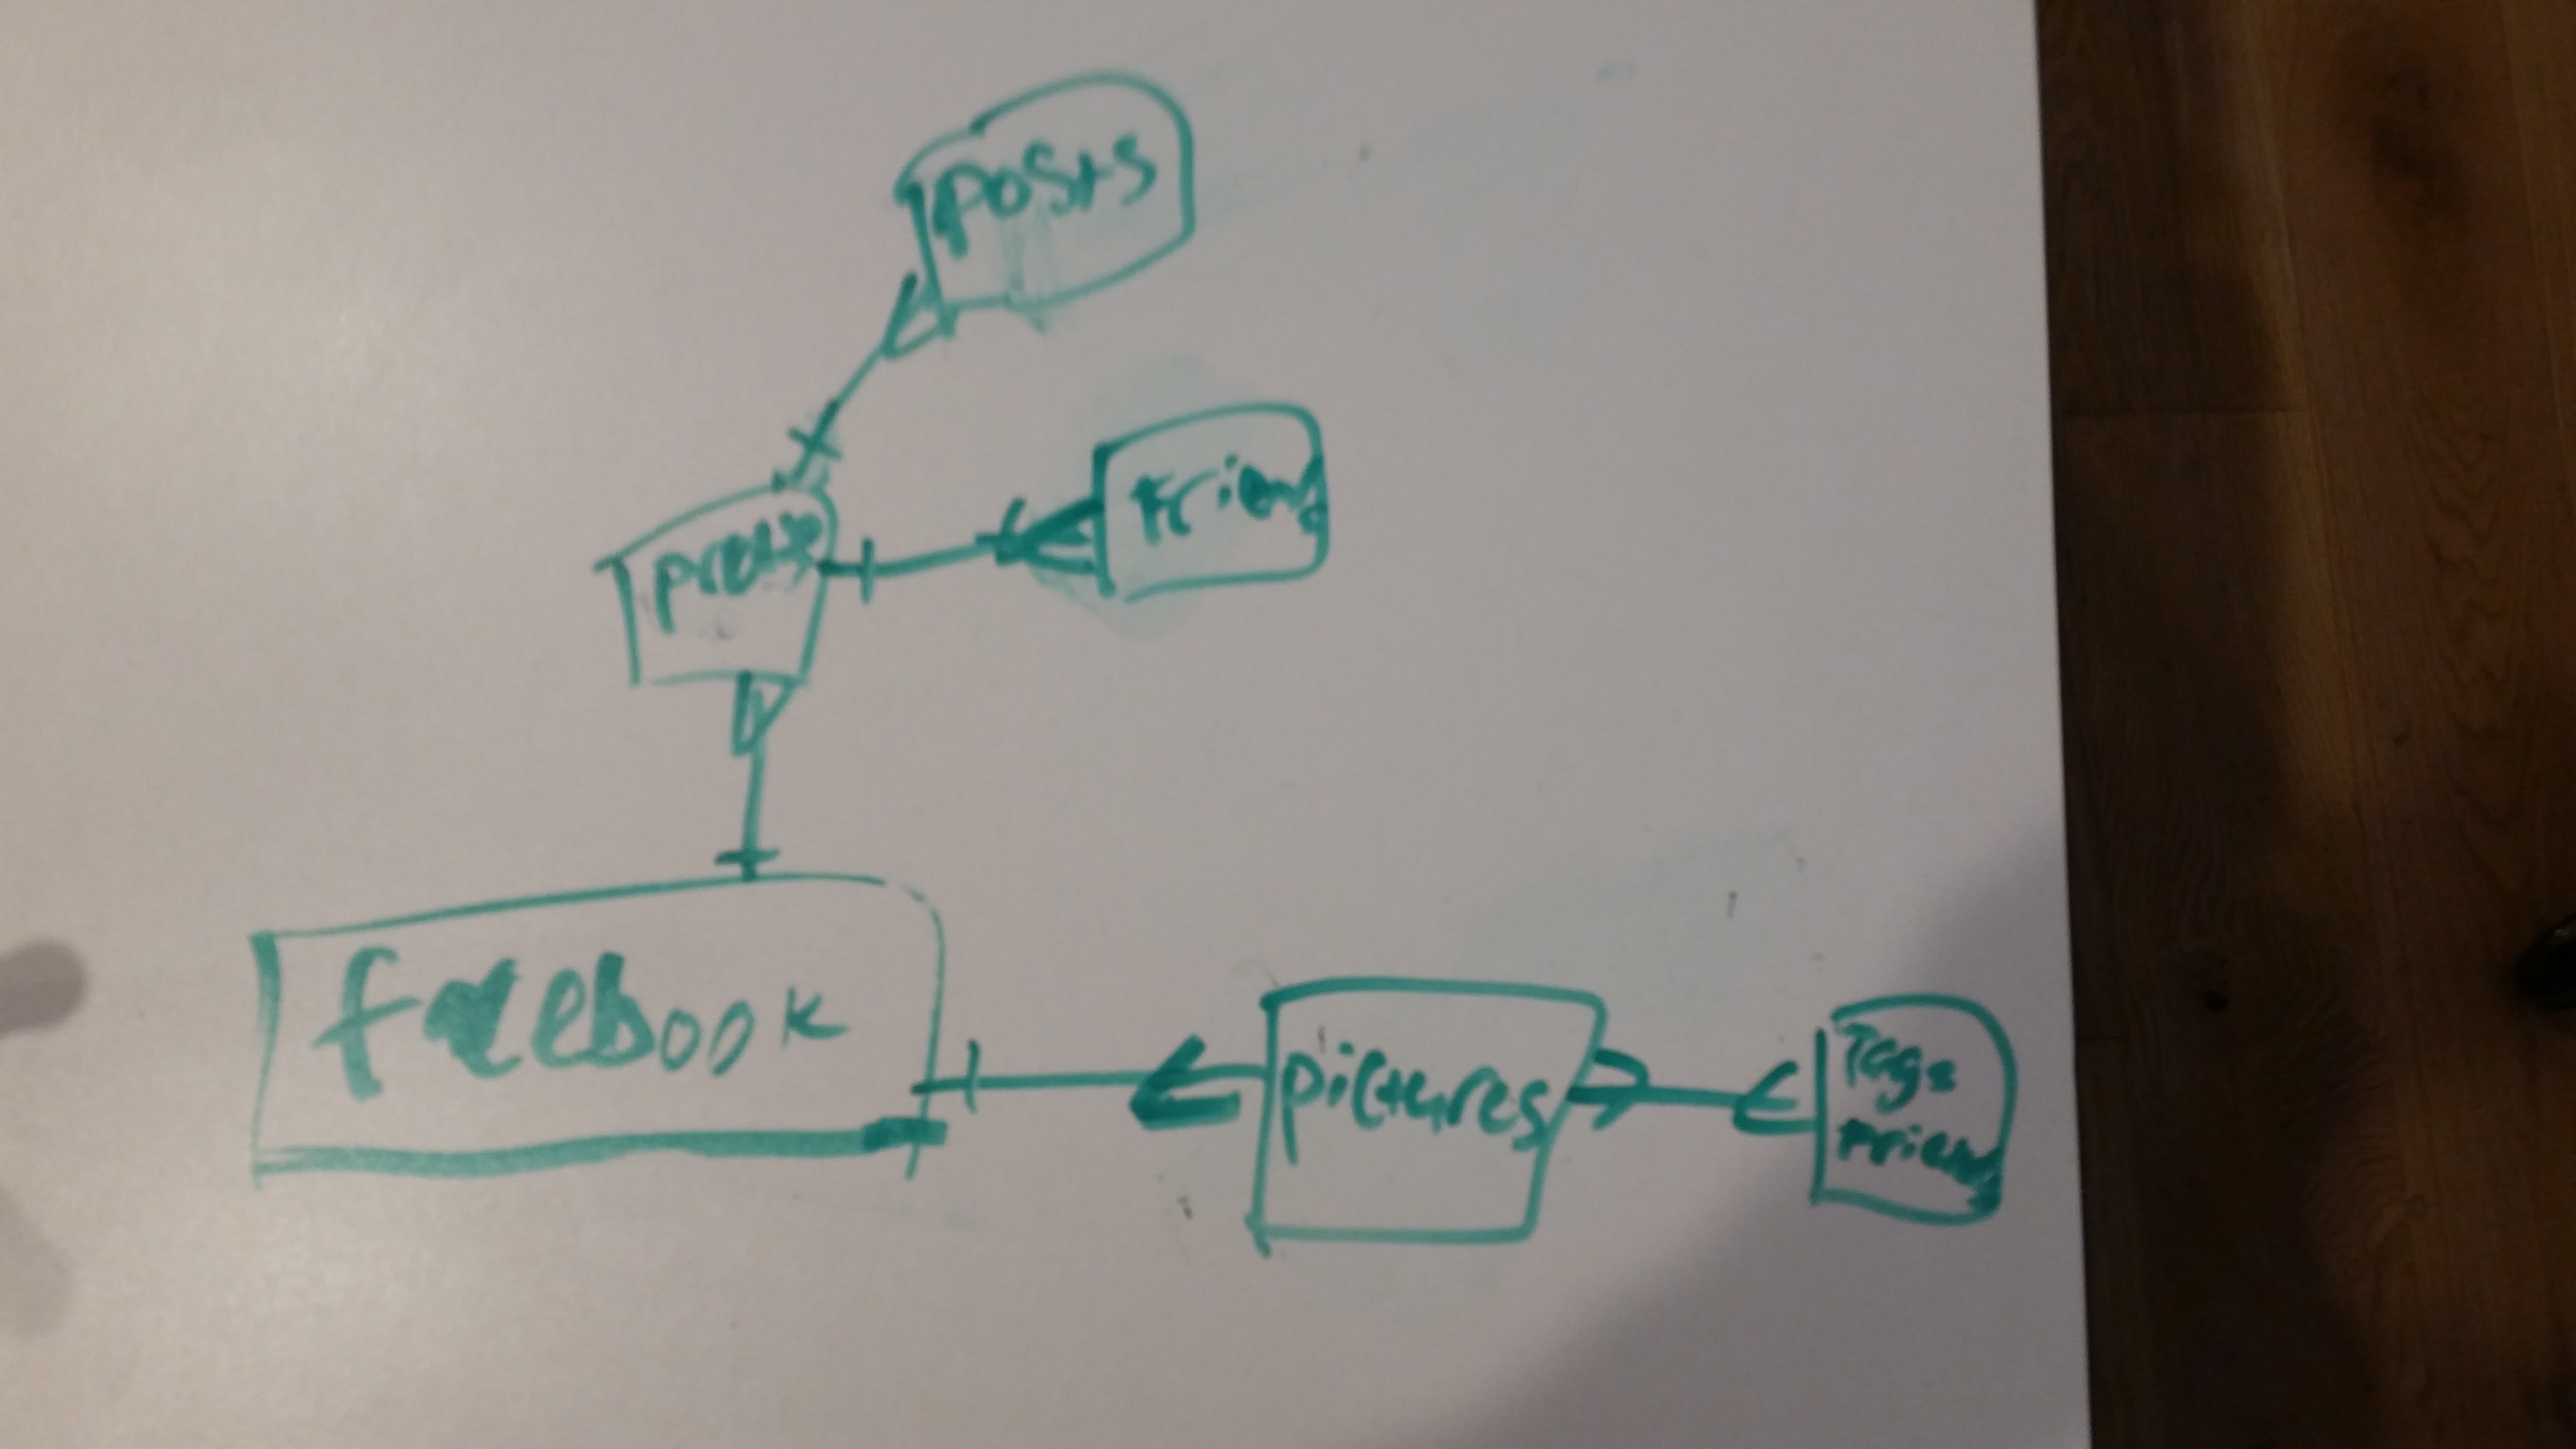 posts
Friend
facebook
pictures
Tags
Friend